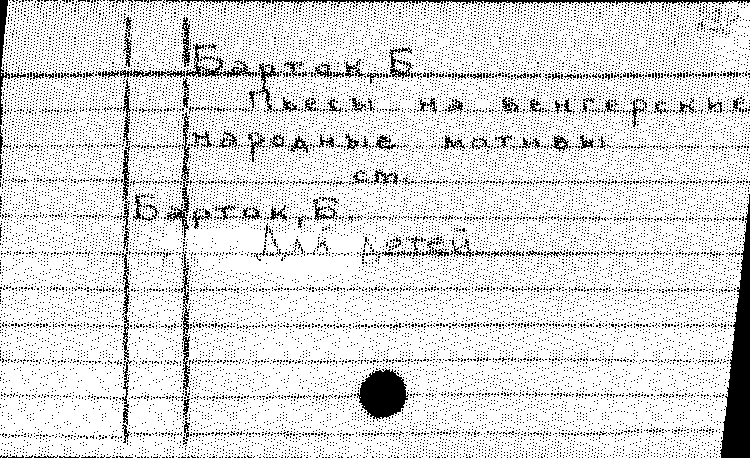 Барток, Б
Пьесы на венгерские
народные мотивы
ст.
Барток, Б.
Для детей